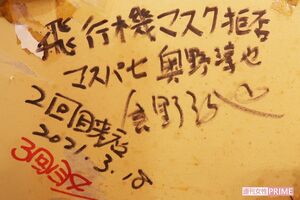 飛行機マスク拒否
マスパセ 奥野淳也
2回目来店
奥野淳也
2021.3.18
3回目
週刊女性PRIME